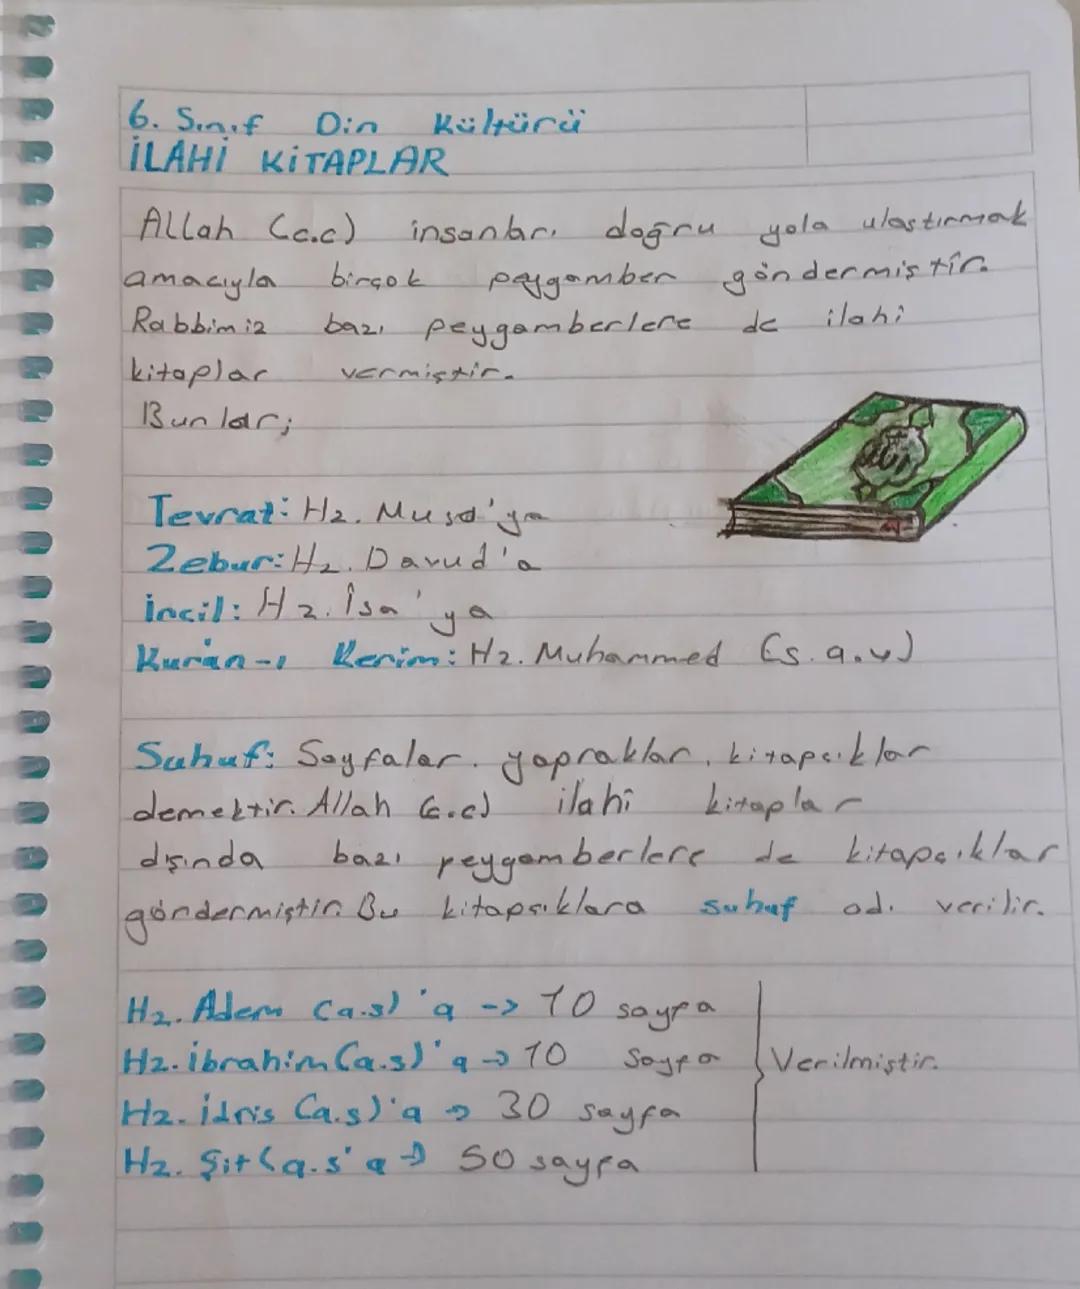 6. Sınıf Din Kültürü
İLAHİ KİTAPLAR
Allah (c.c) insanları doğru yola ulaştırmak
amacıyla birçok peygamber göndermiştir.
Rabbimiz bazı peygamberlere de ilahi
kitaplar vermiştir.
Bunlar;
Tevrat: Hz. Musa'ya
Zebur: Hz. Davud'a
İncil: Hz. Îsa'ya
Kuran-ı Kerim: Hz. Muhammed (s.a.v)
Suhuf: Sayfalar, yapraklar, kitapçıklar
demektir. Allah (c.c) ilahî kitaplar
dışında bazı peygamberlere de kitapçıklar
göndermiştir. Bu kitapçıklara suhuf adı verilir.
Hz. Adem (a.s)'a -> 10 sayfa
Hz. İbrahim (a.s)'a -> 10 sayfa
Verilmiştir.
Hz. İdris (a.s)'a -> 30 sayfa
Hz. Şit (a.s'a -> 50 sayfa